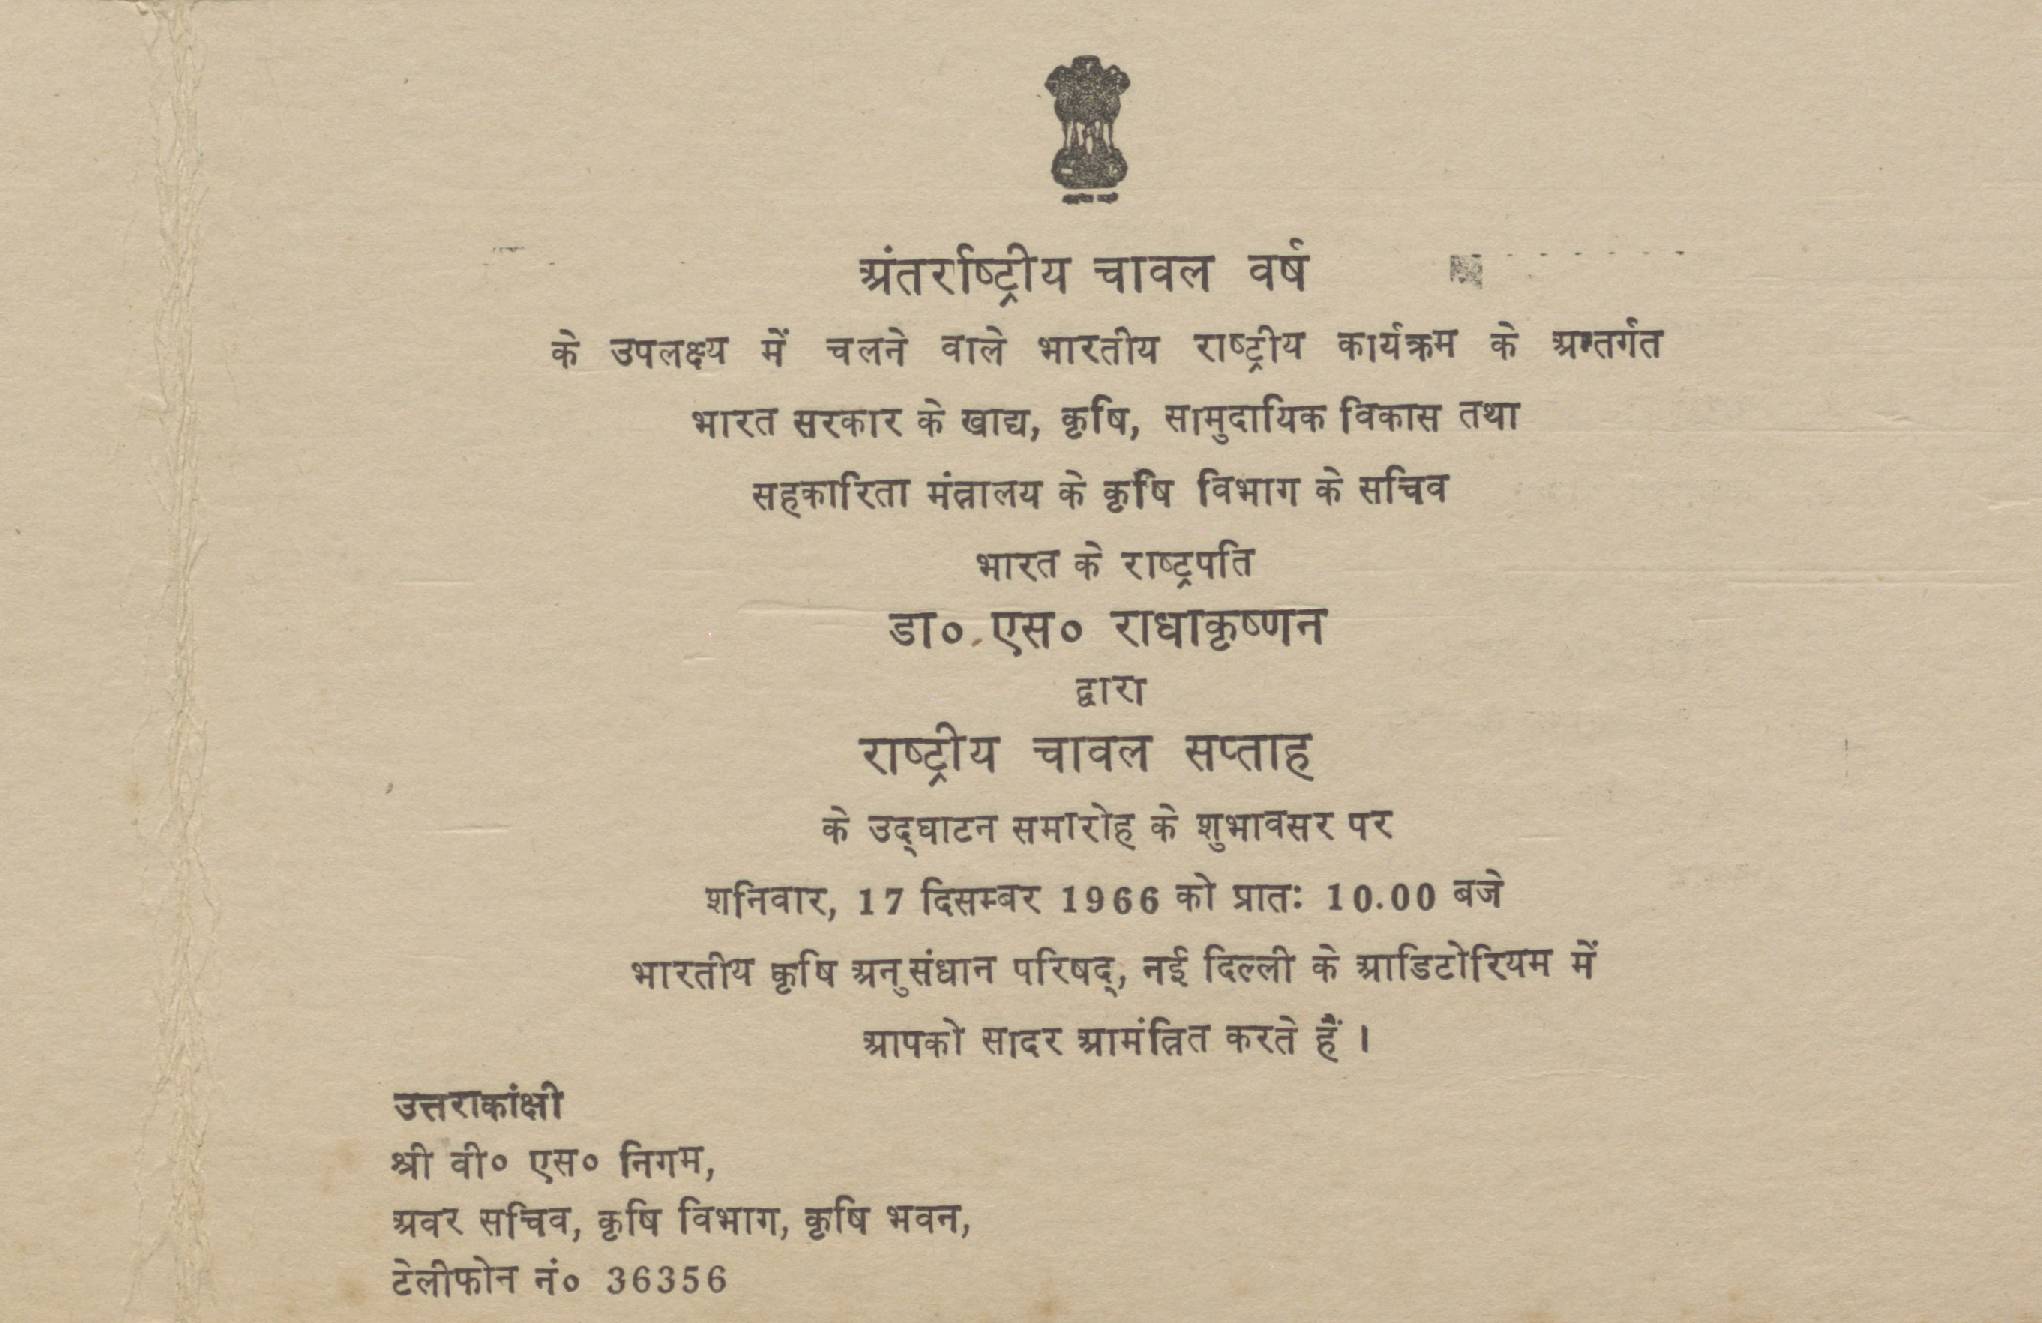 अंतर्राष्ट्रीय चावल वर्ष
के उपलक्ष्य में चलने वाले भारतीय राष्ट्रीय कार्यक्रम के अन्तर्गत
भारत सरकार के खाद्य, कृषि, सामुदायिक विकास तथा
सहकारिता मंत्रालय के कृषि विभाग के सचिव
भारत के राष्ट्रपति
डा० एस० राधाकृष्णन
द्वारा
राष्ट्रीय चावल सप्ताह
के उद्‌घाटन समारोह के शुभावसर पर
शनिवार, 17 दिसम्बर 1966 को प्रातः 10.00 बजे
भारतीय कृषि अनुसंधान परिषद्, नई दिल्ली के आडिटोरियम में
आपको सादर आमंत्रित करते हैं ।
उत्तराकांक्षी
श्री वी० एस० निगम,
अवर सचिव, कृषि विभाग, कृषि भवन,
टेलीफोन नं० 36356